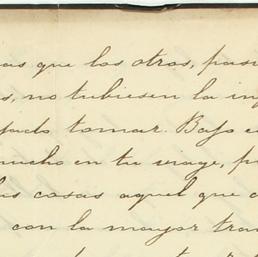 as que los otros, pasa
s, no tubiesen la in
jado tomar. Bajo e
mucho en tu viage, p
las cosas aquel que
con la mayor tra